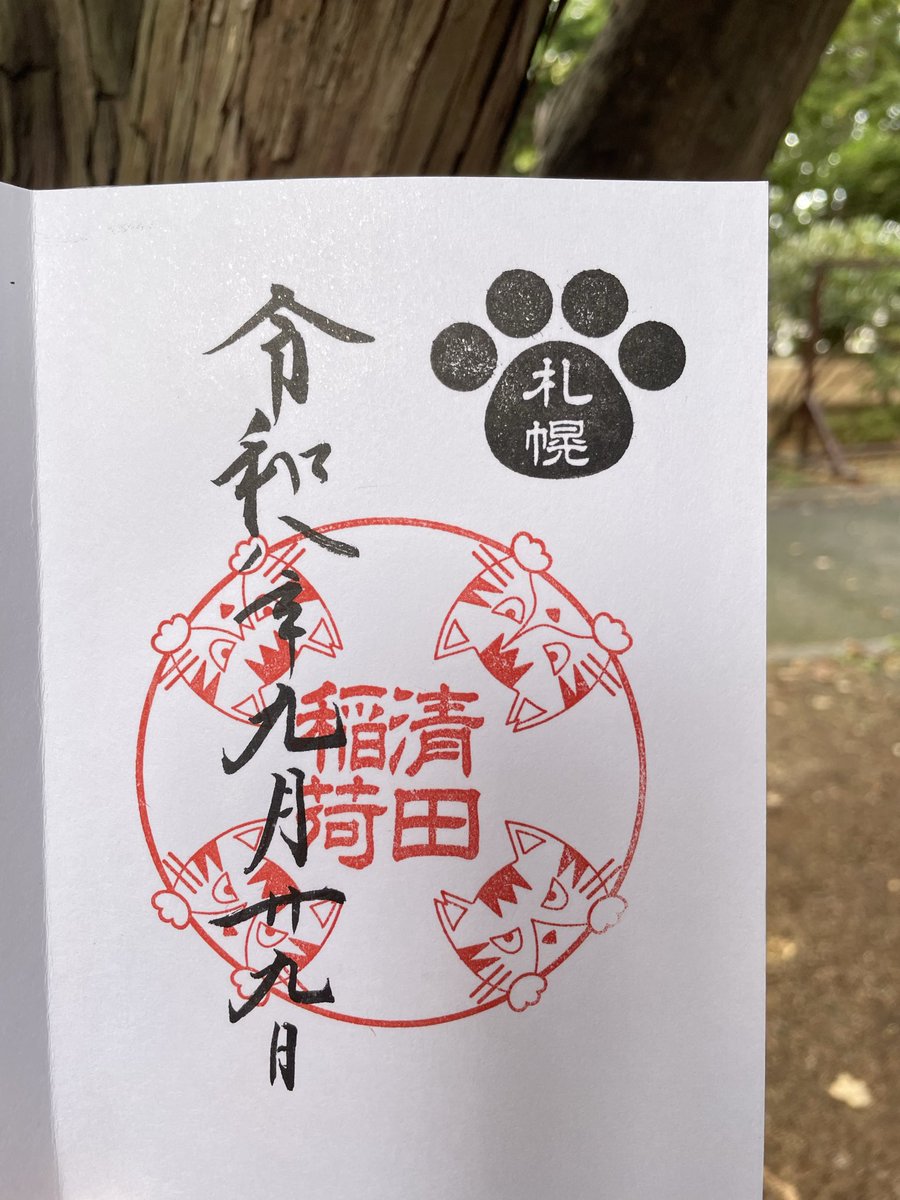 札幌
清田
稲荷
令和八年九月廿九日